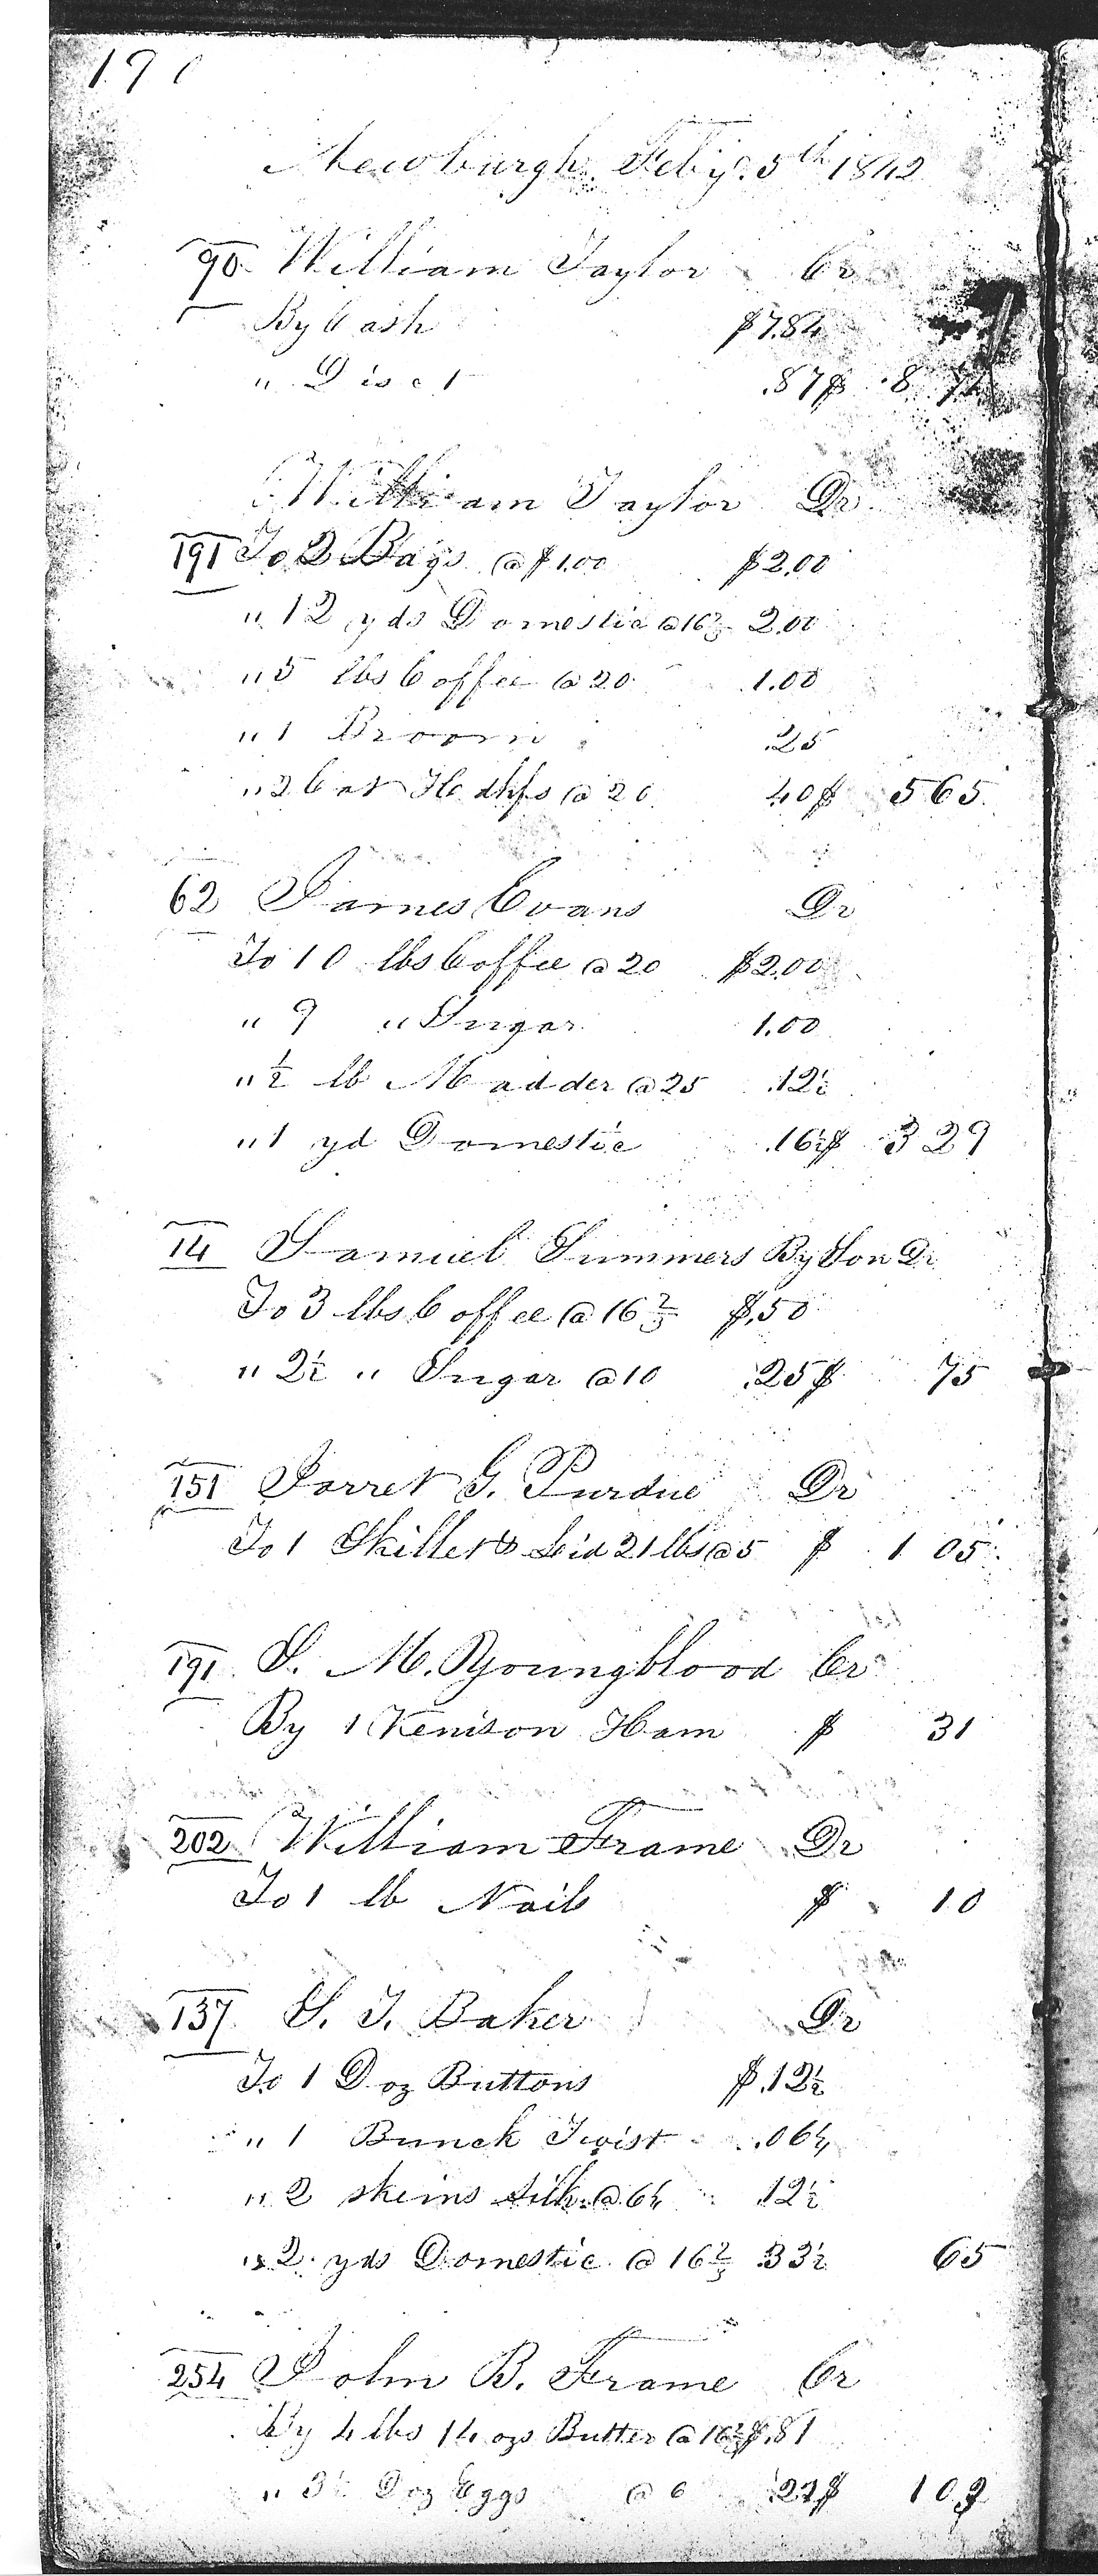 190
Newburgh. Feby. 5th 1842
90 William Taylor Cr
By Cash $7.84
" Disct .87 $ 8 71
William Taylor Dr
191 To 2 Bags @ $1.00 $2.00
" 12 yds Domestic @ 16⅔ 2.00
" 5 lbs Coffee @ 20 1.00
" 1 Broom .25
" 2 Cot Hdkfs @ 20 .40 $ 5 65
62 James Evans Dr
To 10 lbs Coffee @ 20 $2.00
" 9 " Sugar 1.00
" ½ lb Madder @ 25 .12½
" 1 yd Domestic .16½ $ 3 29
14 Samuel Summers By Son Dr
To 3 lbs Coffee @ 16⅔ $.50
" 2½ " Sugar @ 10 .25 $ 75
151 Jorret G. Purdue Dr
To 1 Skillet & Lid 21 lbs @ 5 $ 1 05
191 S. M. Youngblood Cr
By 1 Venison Ham $ 31
202 William Frame Dr
To 1 lb Nails $ 10
137 S. T. Baker Dr
To 1 Doz Buttons $.12½
" 1 Bunck Twist .06¼
" 2 skeins Silk @ 6¼ .12½
" 2 yds Domestic @ 16⅔ .33½ 65
254 John B. Frame Cr
By 4 lbs 14 ozs Butter @ 16⅔ $.81
" 3½ Doz Eggs @ 6 $ 1 02